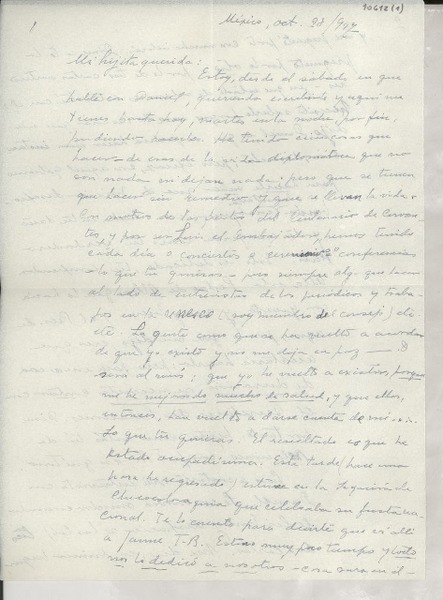 10612(1)
México, oct. 28/947
Mi hijita querida:
Estoy, desde el sábado en que
hablé con Daniel, queriendo escribirle y aquí me
tienes hasta hoy, martes en la noche, por fin,
pudiendo hacerlo. He tenido
hacer de esas de la diplomática que no
son nada, ni dejan nada; pero que se tienen
que hacer sin remedio y que se llevan la vida.
Con motivo de las fiestas del Centenario de Cervan-
tes, y por ser Luis el Embajador, hemos tenido
cada día o concursos o conferencias
o lo que tú quieras — pero siempre algo que hacer
al lado de entrevistas de los periódicos y traba-
jos en la UNESCO (soy miembro del consejo) etc
etc. La gente como que se ha vuelto a acordar
de que yo existo y no me deja en paz — O
será al revés; que yo he vuelto a existir, porque
me he mejorado mucho de salud, y que ellos,
entonces, han vuelto a darse cuenta de mí...
Lo que tú quieras. El resultado es que he
estado ocupadísima. Esta tarde, hace una
hora he regresado, estuve en la Legación de
Checoeslovaquia que celebraba su fiesta na-
cional. Te lo cuento para decirte que vi allí
a Jaime T-B. Estuvo muy poco tiempo y todo
nos lo dedicó a nosotros — cosa rara en él —